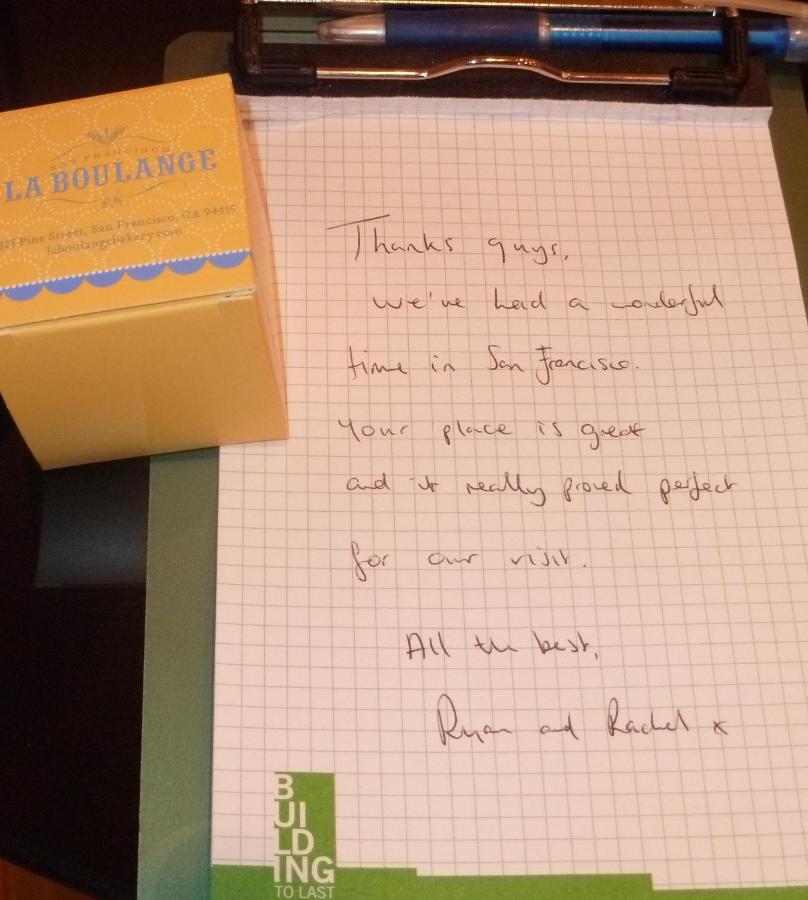 SAN FRANCISCO
LA BOULANGE
Pine Street, San Francisco, CA 94115
laboulangebakery.com
Thanks guys,
we've had a wonderful
time in San Francisco.
Your place is great
and it really proved perfect
for our visit.
All the best,
Ryan and Rachel x
B
UI
LD
ING
TO LAST